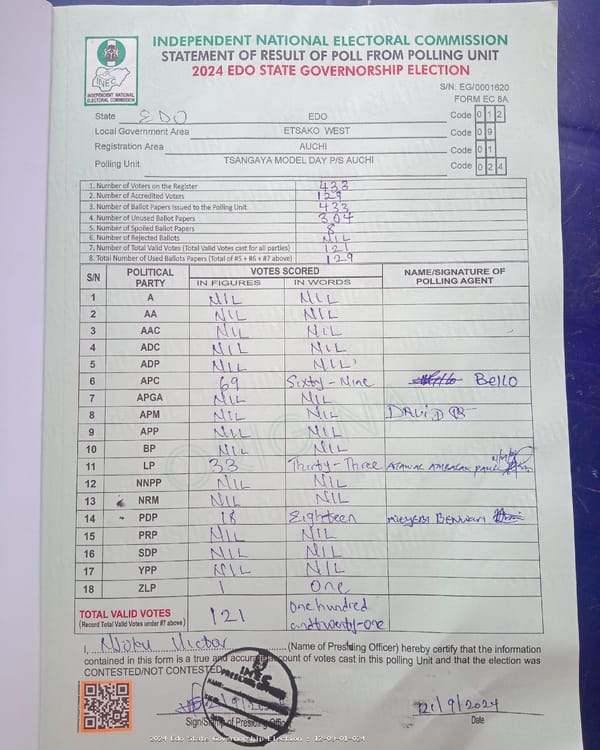 INDEPENDENT NATIONAL ELECTORAL COMMISSION
STATEMENT OF RESULT OF POLL FROM POLLING UNIT
2024 EDO STATE GOVERNORSHIP ELECTION
INEC
INDEPENDENT NATIONAL ELECTORAL COMMISSION
S/N: EG/0001620
FORM EC 8A
State EDO EDO Code 0 1 2
Local Government Area ETSAKO WEST Code 0 9
Registration Area AUCHI Code 0 1
Polling Unit TSANGAYA MODEL DAY P/S AUCHI Code 0 2 4
1. Number of Voters on the Register 433
2. Number of Accredited Voters 129
3. Number of Ballot Papers Issued to the Polling Unit 433
4. Number of Unused Ballot Papers 304
5. Number of Spoiled Ballot Papers 8
6. Number of Rejected Ballots NIL
7. Number of Total Valid Votes (Total Valid Votes cast for all parties) 121
8. Total Number of Used Ballots Papers (Total of #5 + #6 + #7 above) 129
S/N POLITICAL PARTY VOTES SCORED NAME/SIGNATURE OF POLLING AGENT
IN FIGURES IN WORDS
1 A NIL NIL
2 AA NIL NIL
3 AAC NIL NIL
4 ADC NIL NIL
5 ADP NIL NIL
6 APC 69 Sixty-Nine Bello
7 APGA NIL NIL
8 APM NIL NIL DAVID
9 APP NIL NIL
10 BP NIL NIL
11 LP 33 Thirty-Three
12 NNPP NIL NIL
13 NRM NIL NIL
14 PDP 18 Eighteen
15 PRP NIL NIL
16 SDP NIL NIL
17 YPP NIL NIL
18 ZLP 1 One
TOTAL VALID VOTES 121 One hundred
(Record Total Valid Votes under #7 above) and twenty-one
I, Victor (Name of Presiding Officer) hereby certify that the information
contained in this form is a true and accurate account of votes cast in this polling Unit and that the election was
CONTESTED/NOT CONTESTED
INEC
PRESIDING OFFICER
21/9/2024
Sign/Stamp of Presiding Officer Date
2024 Edo State Governorship Election - 12-09-01-024